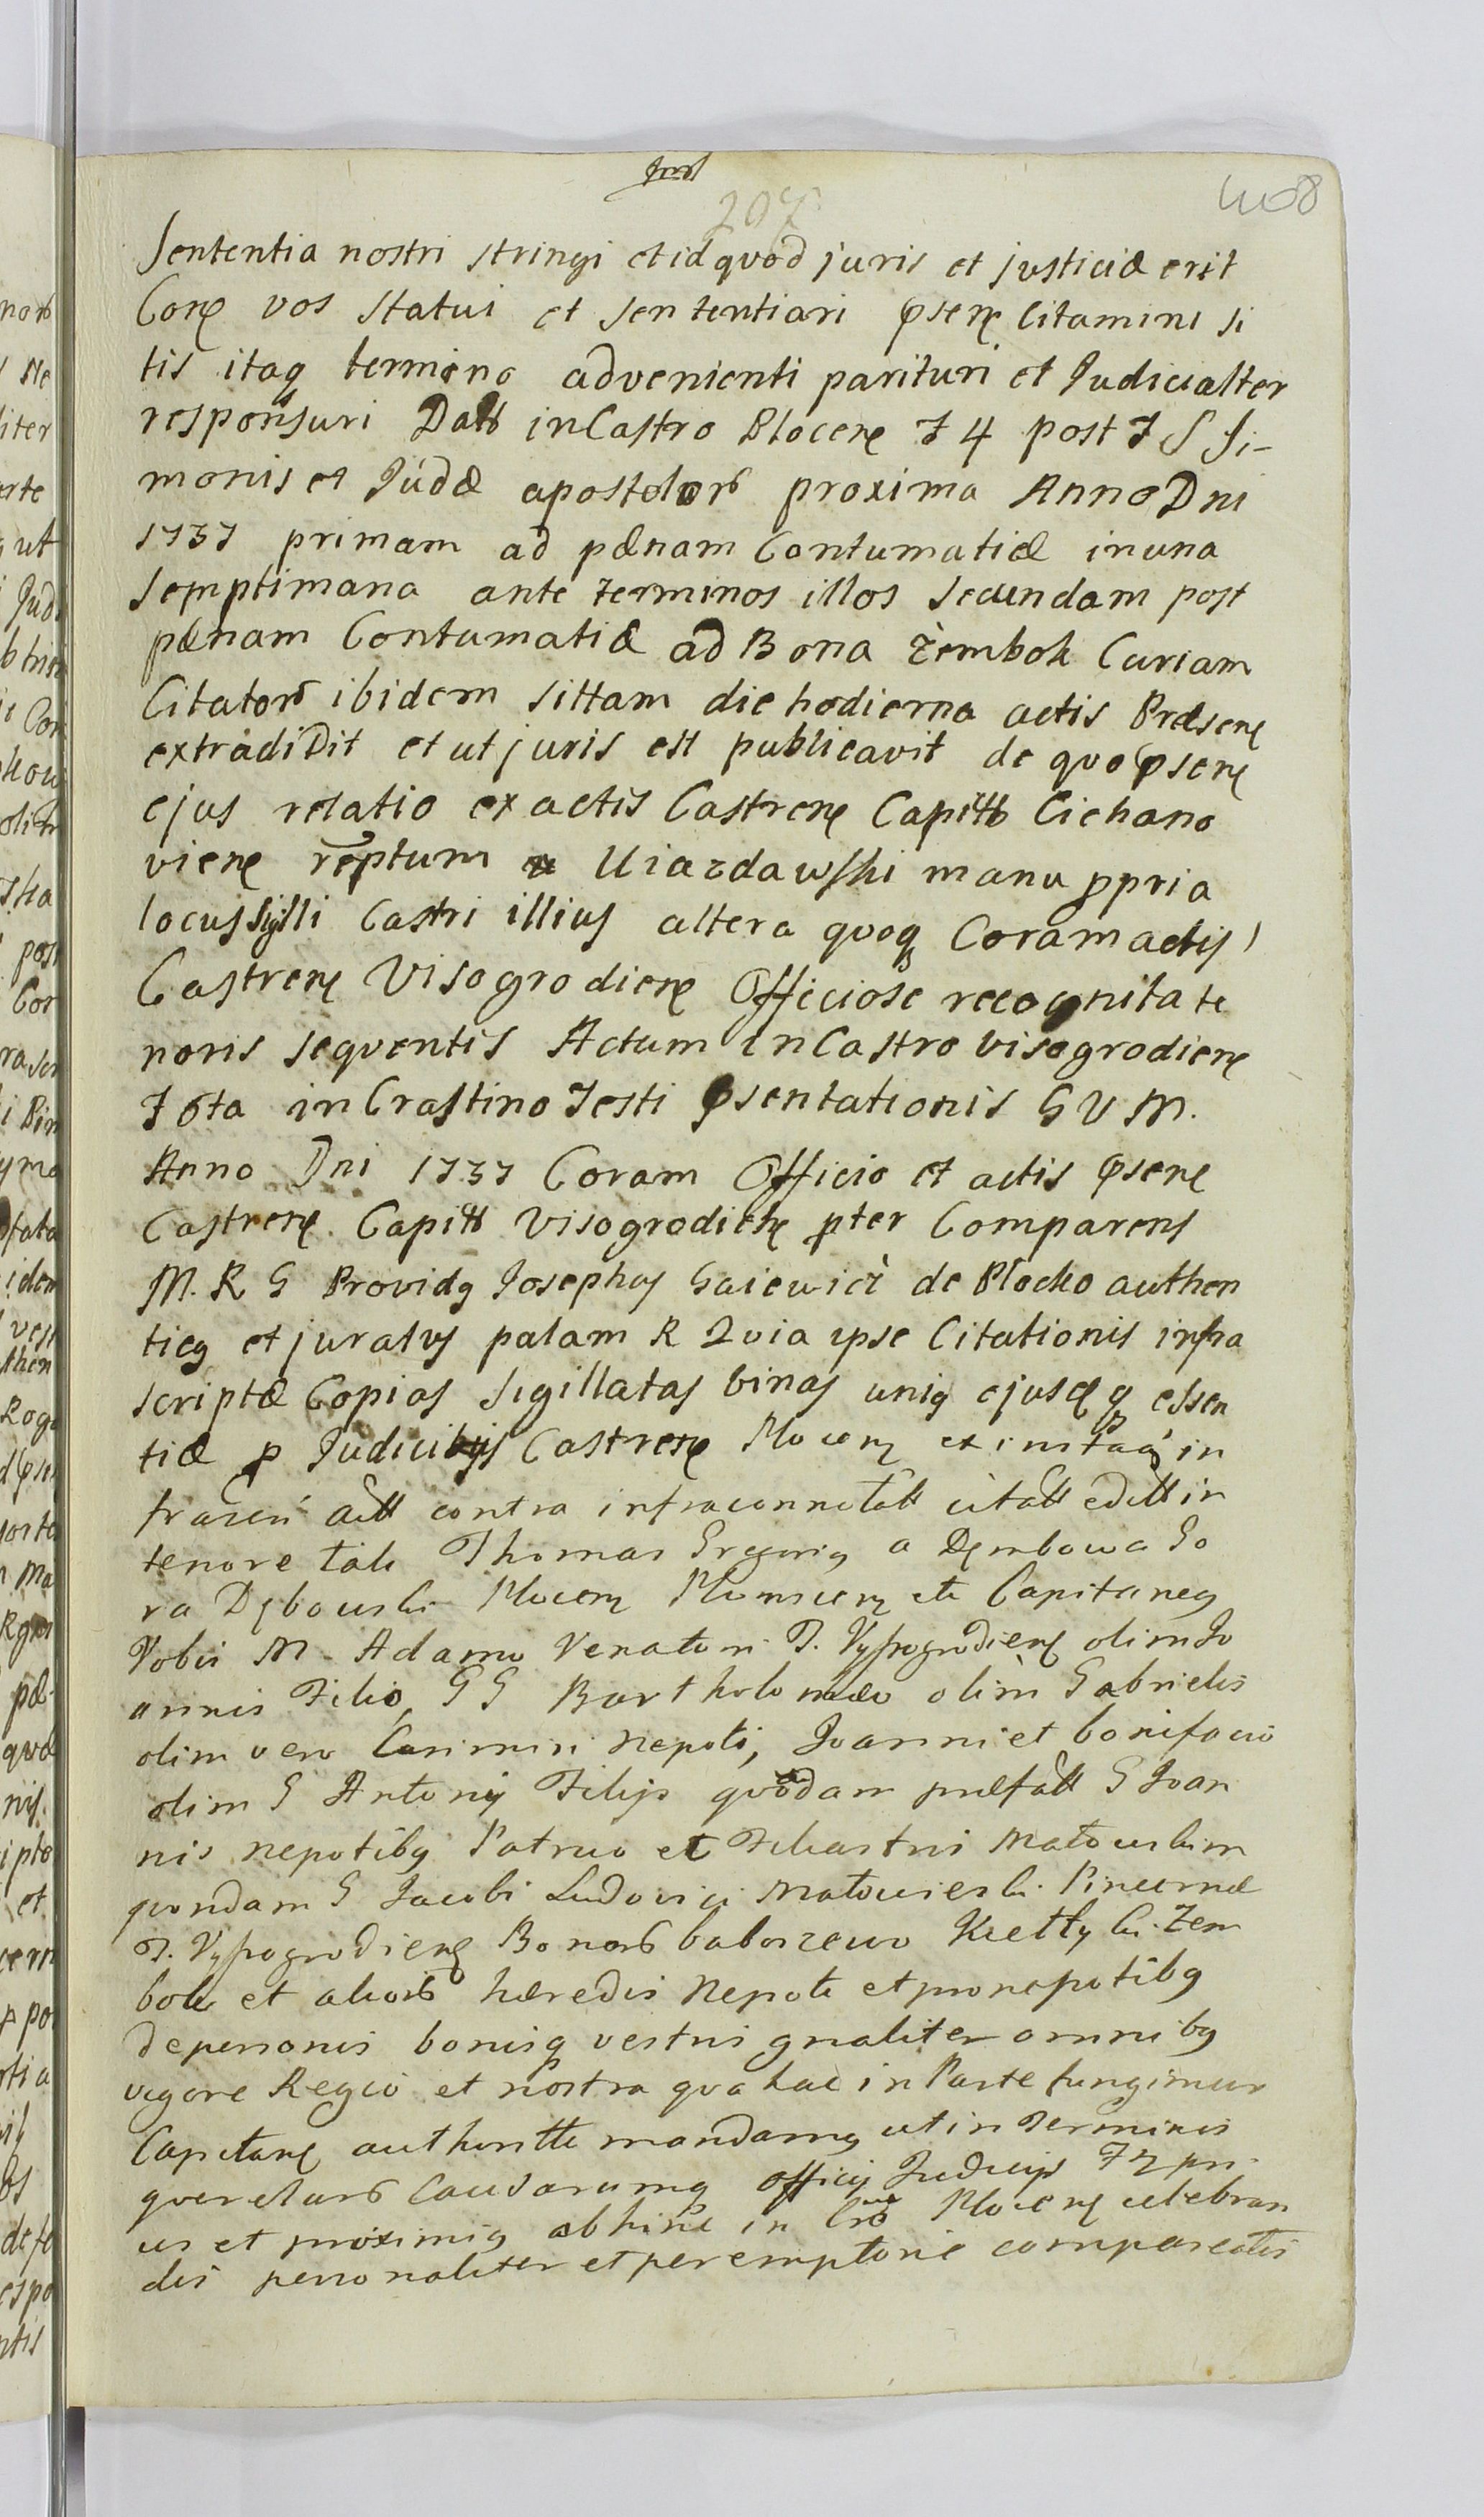 207
408
Sententia nostri stringi et id quod juris et justiciæ erit
Coræ vos statui et sententiari pseñ Citamini si
tis itaq termino advenienti parituri et Judicialter
responsuri Datt in Castro Plocen F 4 post F S Si-
monis et Judæ apostolor proxima Anno Dni
1737 primam ad pænam Contumatiæ in una
Semptimana ante terminos illos Secundam post
pænam Contumatiæ ad Bona Zembok Curiam
Citator ibidem sittam die hodierna actis Præsen
extradidit et ut juris est publicavit de quo psen
ejus relatio ex actis Castren Capitt Ciehano
vien reptum Uiazdawski manu ppria
locus sigilli Castri illius altera quoq Coram actis
Castren Visogrodien Officiose recognita te
noris sequentis Actum in Castro visogrodien
F 6ta in Crastino Festi psentationis B V M.
Anno Dni 1737 Coram Officio et actis psen
Castren Capitt Visogrodien pter Comparens
M. R G Providq Josephus Gaiewicz de Plocko authen
ticq et juratus palam R Quia ipse Citationis infra
scriptæ Copias sigillatas binas uniq ejusdq essen
tiæ p Judicibus Castren Plocen ex instaã in
frascr att contra infraconnotatt citatt editt in
tenore tali Thomas Gregoriq a Dembowa Go
ra Dębowski Plocen Plonscen etc Capitaneq
Vobis M. Adamo Venatori T. Vyssogrodien olim Jo
annis Filio, G G Bartholomæo olim Gabrielis
olim vero Casimiri nepoti, Joanni et bonifacio
olim G Antonij Filijs quodam præfatt G Joan
nis nepotibq Patruo et Filiastris Matowskim
quondam G Jacobi Ludovici Matowieski Pincernæ
T. Vyssogrodien Bonor baborzewo Kiełtyki Zem
bok et alior hæredis Nepoti et pronepotibq
de personis bonisq vestris gnaliter omnibq
vigore Regio et nostra qua hac in Parte fungimur
Capitan authoritte mandamq ut in Terminis
querelaru Causarumq officij Judicijs pri
us et proximiq abhinc in Cro Plocen celebran
dis personaliter et peremptorie compareatis